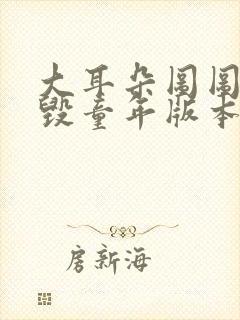 大耳朵图图
毁童年版本
房新海